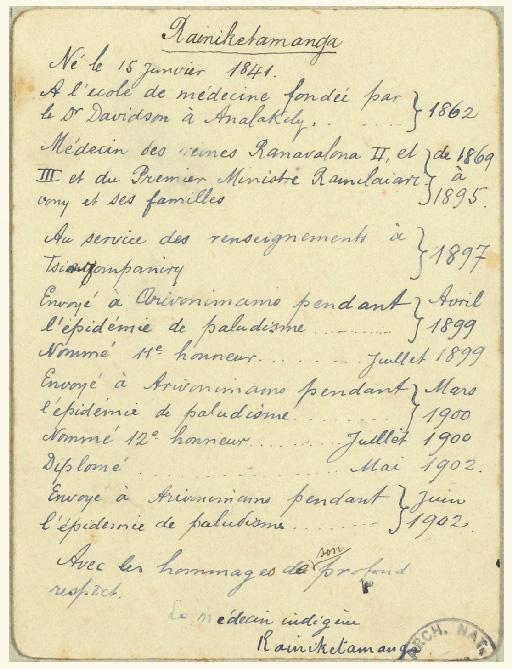 Rainiketamanga
Né le 15 Janvier 1841.
A l'école de médecine fondée par
le Dr Davidson à Analakely. } 1862
Médecin des reines Ranavalona II, et } de 1869
III et du Premier Ministre Rainilaiari à
vony et ses familles 1895.
Au service des renseignements à } 1897
Envoyé à Arivonimamo pendant } Avril
l'épidémie de paludisme 1899
Nommé 11e honneur. Juillet 1899
Envoyé à Arivonimamo pendant } Mars
l'épidémie de paludisme 1900
Nommé 12e honneur Juillet 1900
Diplomé Mai 1902.
Envoyé à Arivonimamo pendant } Juin
l'épidémie de paludisme 1902.
Avec les hommages de son profond
respect.
Le médecin indigène
Rainiketamanga
ARCH. NAT.